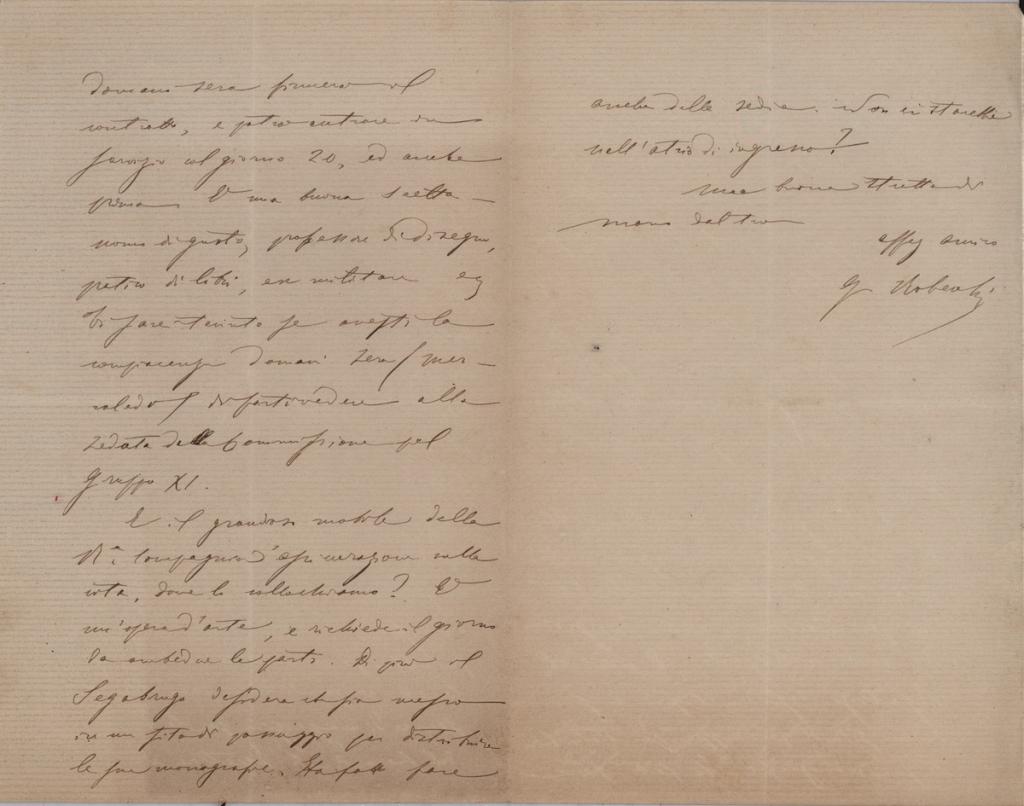 domani sera firmerà il
contratto, e potrà entrare in
servizio col giorno 20, ed anche
prima. È una buona scelta –
uomo di gusto, professore di disegno,
pratico di libri, ex militare
Ti sarei tenuto se avesti la
compiacenza domani sera (mer-
coledì) di farti vedere alla
seduta della Commissione pel
Gruppo XI.
E il grandioso mobile della
R.a Compagnia d'assicurazione sulla
vita, dove lo collochiamo? È
un'opera d'arte, e richiede il giorno
da ambedue le parti. Di più il
desidera che sia messo
in un sito di passaggio per distribuire
le sue monografie. Ha fatto fare
anche delle sedie. Non ci starebbe
nell'atrio di ingresso?
Una buona stretta di
mano dal tuo
affez amico
G